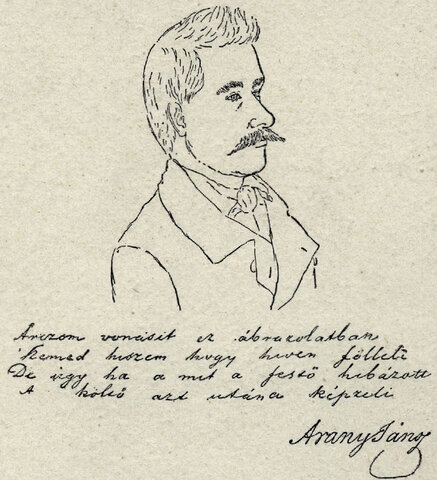 Arczom vonásit ez ábrazolatban
Szemed hiszem hogy hiven fölleli
De úgy ha a mit a festő hibázott
A költő azt utána képzeli
Arany János